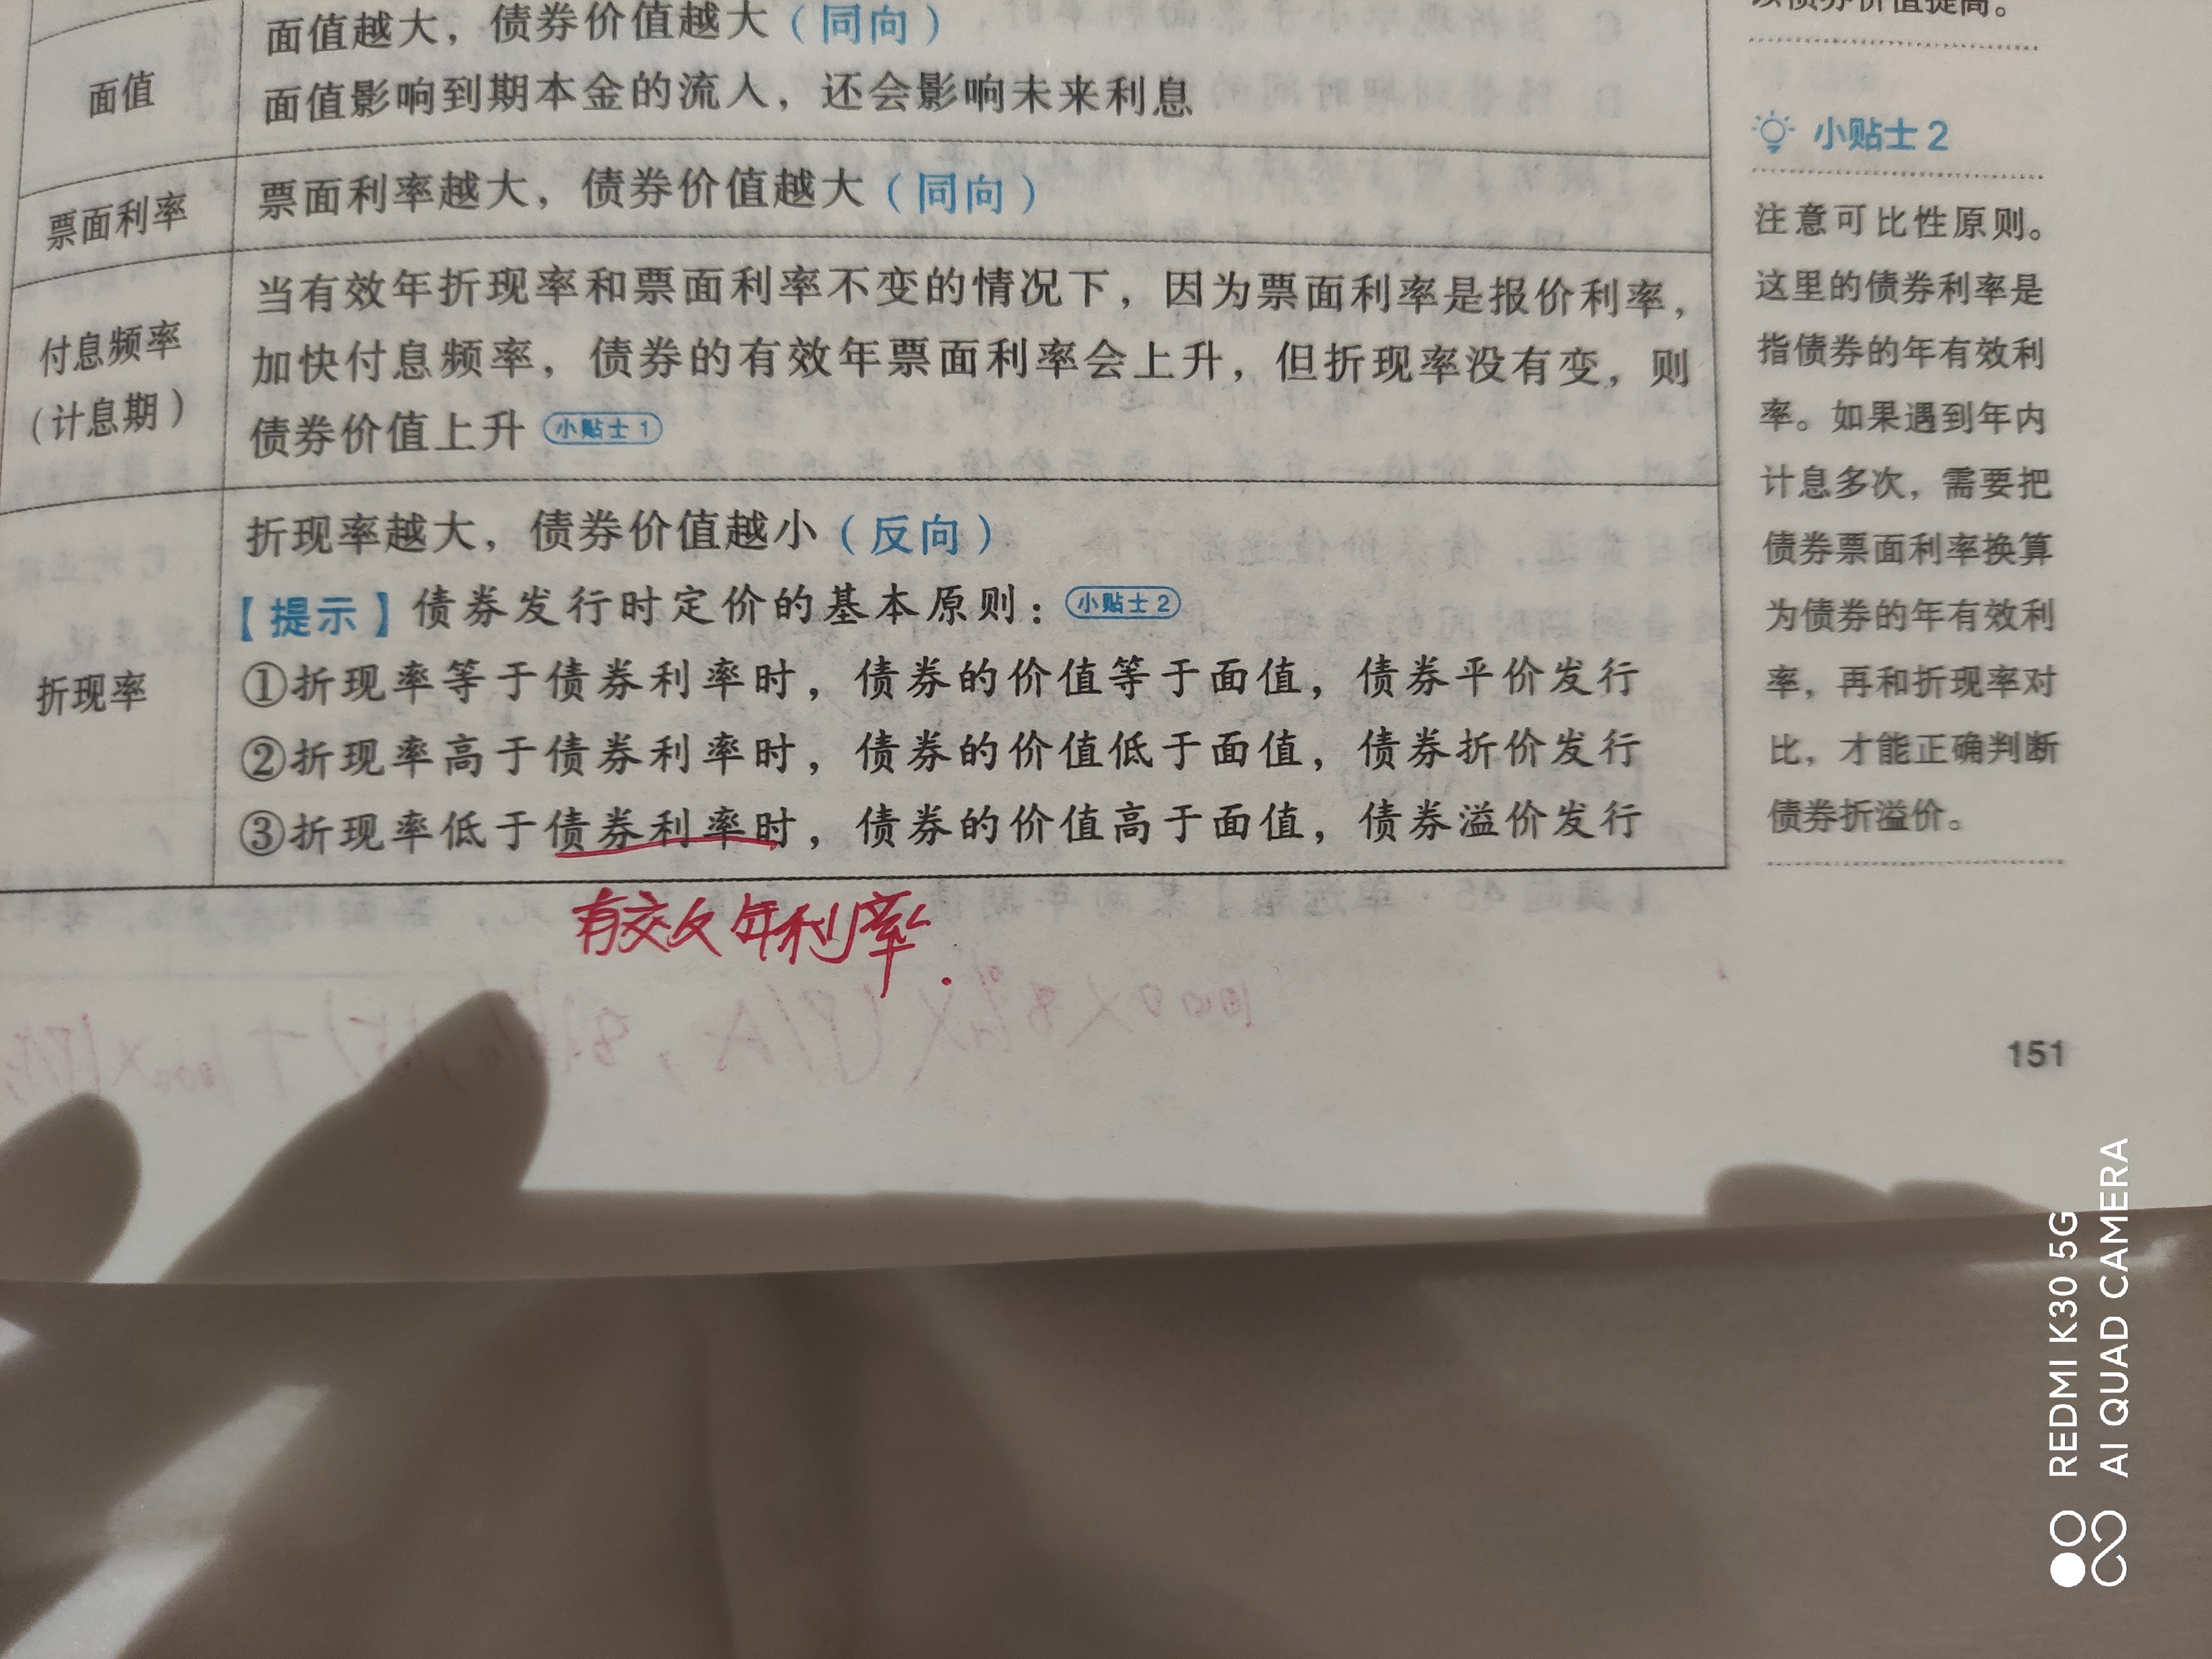 面值
面值越大，债券价值越大（同向）
面值影响到期本金的流入，还会影响未来利息
票面利率
票面利率越大，债券价值越大（同向）
付息频率
（计息期）
当有效年折现率和票面利率不变的情况下，因为票面利率是报价利率，
加快付息频率，债券的有效年票面利率会上升，但折现率没有变，则
债券价值上升 小贴士1
折现率
折现率越大，债券价值越小（反向）
【提示】债券发行时定价的基本原则：小贴士2
①折现率等于债券利率时，债券的价值等于面值，债券平价发行
②折现率高于债券利率时，债券的价值低于面值，债券折价发行
③折现率低于债券利率时，债券的价值高于面值，债券溢价发行
有效年利率.
以债券价值提高。
小贴士2
注意可比性原则。
这里的债券利率是
指债券的年有效利
率。如果遇到年内
计息多次，需要把
债券票面利率换算
为债券的年有效利
率，再和折现率对
比，才能正确判断
债券折溢价。
151
REDMI K30 5G
AI QUAD CAMERA